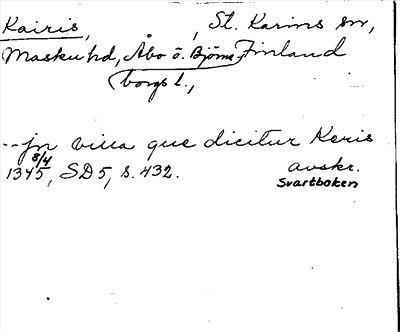 Kairis, , St. Karins sn,
Masku hd, Åbo o. Björne- Finland
borgs l.,
--jn villa que dicitur Keris
8/4
1345, SD 5, s. 432. avskr.
Svartboken